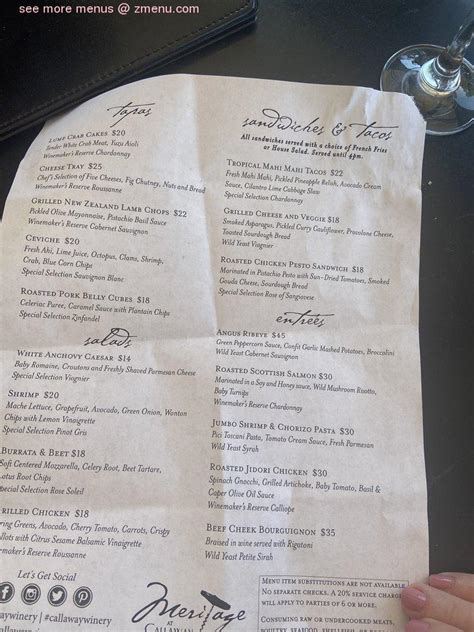 see more menus @ zmenu.com
tapas
Lump Crab Cakes $20
Tender White Crab Meat, Yuzu Aioli
Winemaker's Reserve Chardonnay
Cheese Tray $25
Chef's Selection of Five Cheeses, Fig Chutney, Nuts and Bread
Winemaker's Reserve Roussanne
Grilled New Zealand Lamb Chops $22
Pickled Olive Mayonnaise, Pistachio Basil Sauce
Winemaker's Reserve Cabernet Sauvignon
Ceviche $20
Fresh Ahi, Lime Juice, Octopus, Clams, Shrimp,
Crab, Blue Corn Chips
Special Selection Sauvignon Blanc
Roasted Pork Belly Cubes $18
Celeriac Puree, Caramel Sauce with Plantain Chips
Special Selection Zinfandel
salads
White Anchovy Caesar $14
Baby Romaine, Croutons and Freshly Shaved Parmesan Cheese
Special Selection Viognier
Shrimp $20
Mache Lettuce, Grapefruit, Avocado, Green Onion, Wonton
Chips with Lemon Vinaigrette
Special Selection Pinot Gris
Burrata & Beet $18
Soft Centered Mozzarella, Celery Root, Beet Tartare,
Lotus Root Chips
Special Selection Rose Soleil
Grilled Chicken $18
Spring Greens, Avocado, Cherry Tomato, Carrots, Crispy
Shallots with Citrus Sesame Balsamic Vinaigrette
Winemaker's Reserve Roussanne
Let's Get Social
#callawaywinery
Meritage
at Callaway
sandwiches & tacos
All sandwiches served with a choice of French Fries
or House Salad. Served until 4pm.
Tropical Mahi Mahi Tacos $22
Fresh Mahi Mahi, Pickled Pineapple Relish, Avocado Cream
Sauce, Cilantro Lime Cabbage Slaw
Special Selection Chardonnay
Grilled Cheese and Veggie $18
Smoked Asparagus, Pickled Curry Cauliflower, Provolone Cheese,
Toasted Sourdough Bread
Wild Yeast Viognier
Roasted Chicken Pesto Sandwich $18
Marinated in Pistachio Pesto with Sun-Dried Tomatoes, Smoked
Gouda Cheese, Sourdough Bread
Special Selection Rose of Sangiovese
entrées
Angus Ribeye $45
Green Peppercorn Sauce, Confit Garlic Mashed Potatoes, Broccolini
Wild Yeast Cabernet Sauvignon
Roasted Scottish Salmon $30
Marinated in a Soy and Honey sauce, Wild Mushroom Risotto,
Baby Turnips
Winemaker's Reserve Chardonnay
Jumbo Shrimp & Chorizo Pasta $30
Pici Toscani Pasta, Tomato Cream Sauce, Fresh Parmesan
Wild Yeast Syrah
Roasted Jidori Chicken $30
Spinach Gnocchi, Grilled Artichoke, Baby Tomato, Basil &
Caper Olive Oil Sauce
Winemaker's Reserve Calliope
Beef Cheek Bourguignon $35
Braised in wine served with Rigatoni
Wild Yeast Petite Sirah
Menu item substitutions are not available
No separate checks. A 20% service charge
will apply to parties of 6 or more.
Consuming raw or undercooked meats,
poultry, seafood, shellfish,